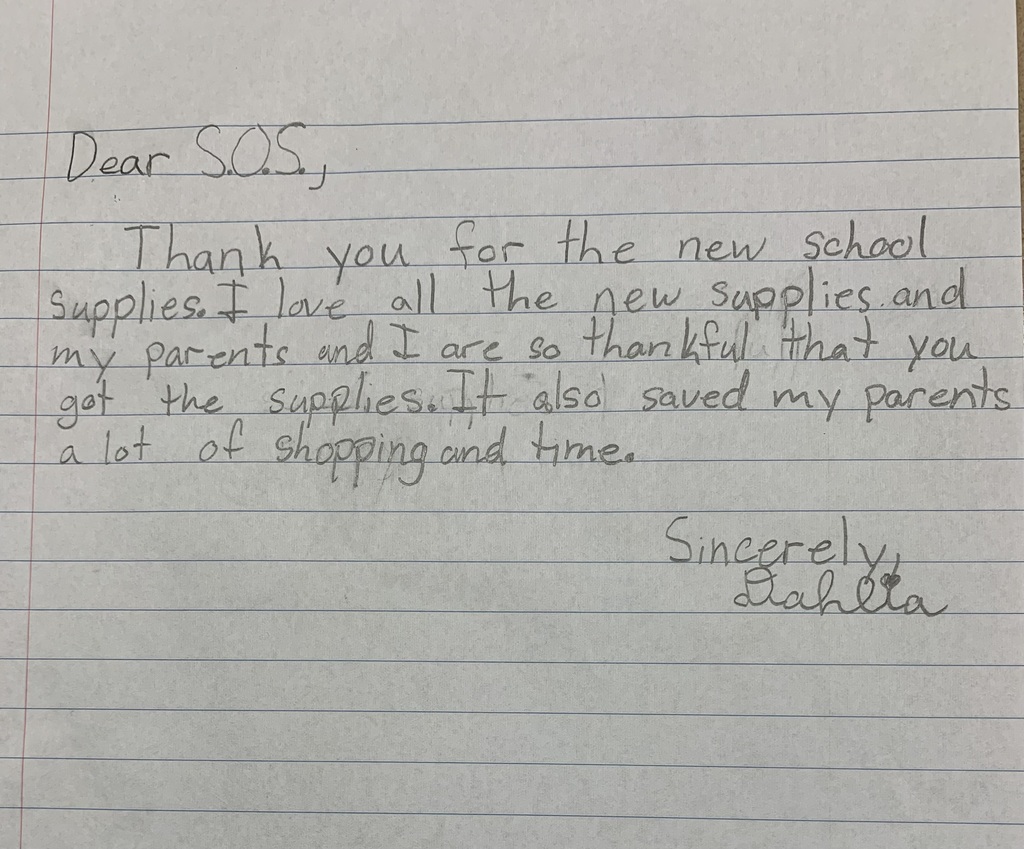 Dear S.O.S.,
Thank you for the new school
supplies. I love all the new supplies and
my parents and I are so thankful that you
got the supplies. It also saved my parents
a lot of shopping and time.
Sincerely,
Dahlia